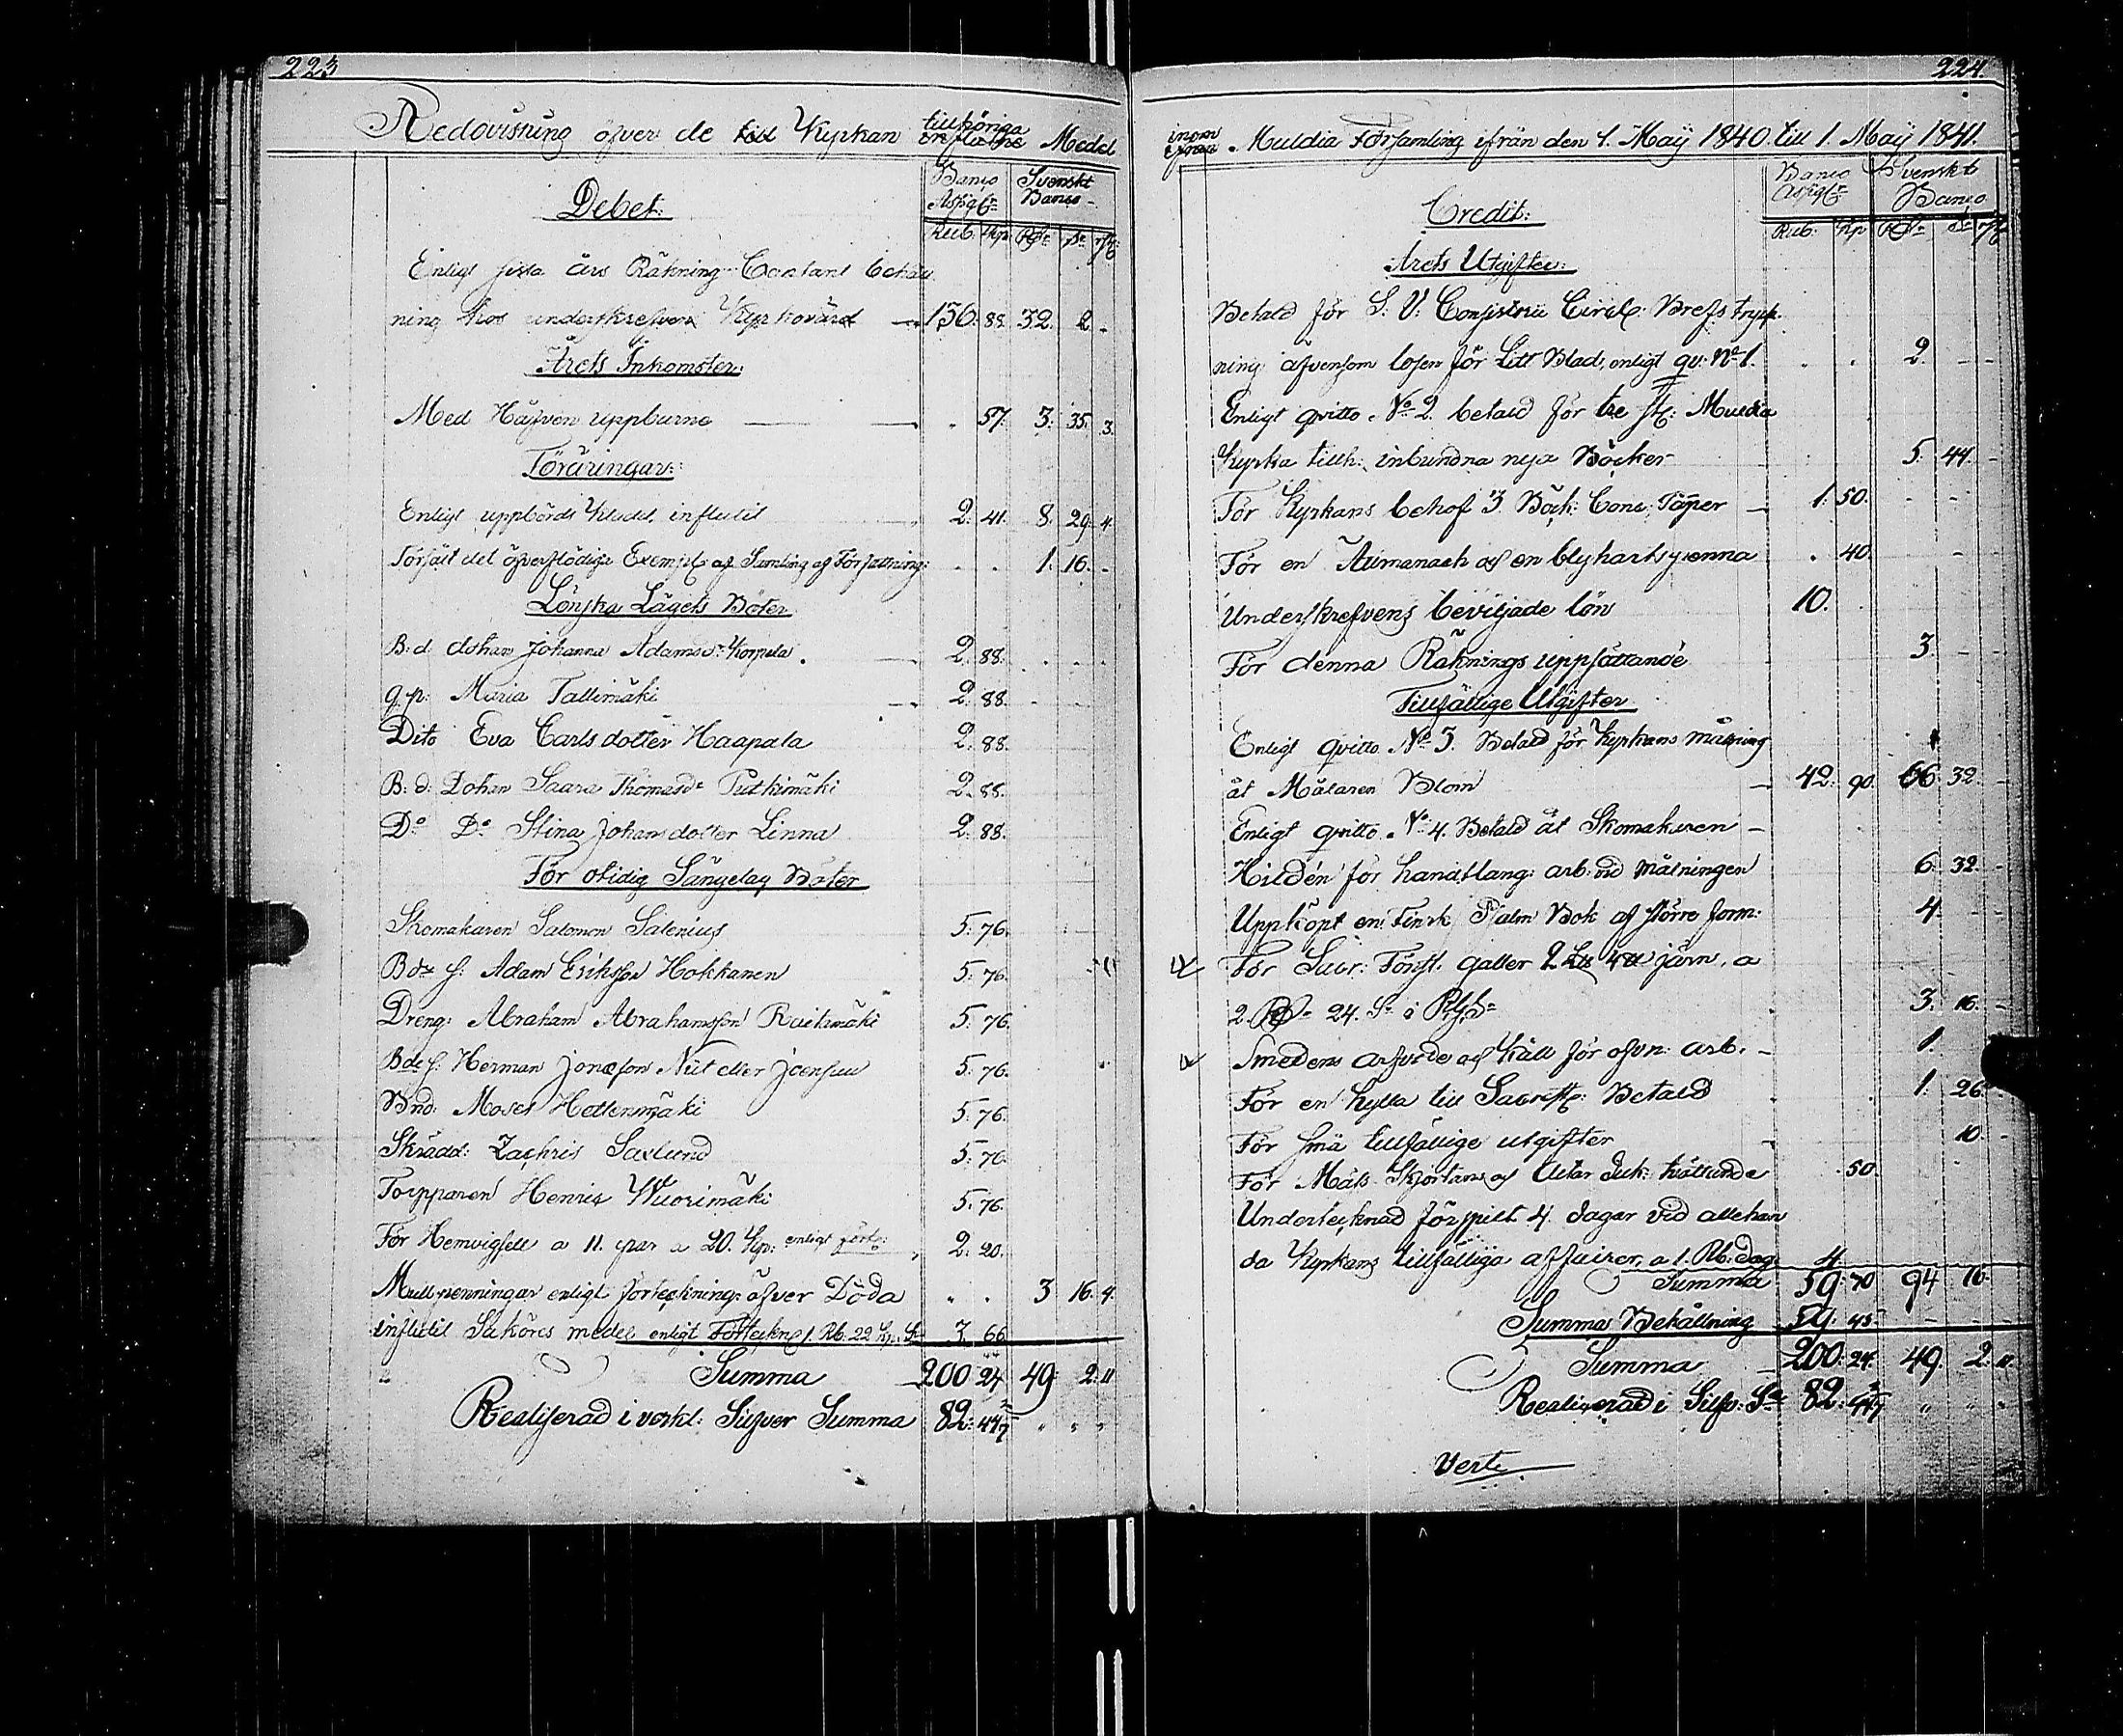 223
Redovisning öfver de till Kyrkan tillhöriga Medel
Banco Assigt:r Svenskt Banco
Debet:
Rub: Kp RD:r S:r rst:
Enligt sista års Räkning Contant behåll
ning hos underskrefven Kyrkovärd 136. 88. 32. 2 -
Årets Inkomster:
Med Håfven uppburne . 57. 3. 35. 3.
Föräringar:
Enligt uppbörds Kladd, influtit 2. 41. 8. 29. 4.
Försålt det öfverflödiga Exempl: af Samling af Författning: . . 1. 16. -
Lönska Lägets Böter
B: d. dottren Johanna Adamsd:r Korpela. 2. 88.
q. p: Maria Tallimäki 2. 88.
Dito Eva Carlsdotter Haapala 2. 88.
B: d: Dottren Saara Thomasd:r Putkimäki 2. 88.
D:o D:o Stina Johansdotter Linna 2. 88.
För otidig Sängelag Böter
Skomakaren Salomon Salenius 5. 76.
Bde s: Adam Eriksson Hokkanen 5. 76.
Dreng: Abraham Abrahamsson Rautamäki 5. 76.
Bde s: Herman Jonasson Niit eller Joensuu 5. 76.
Bnd: Moses Hettenmäki 5. 76.
Skrädd: Zachris Saxlund 5. 76
Torpparen Henric Wuorimäki 5. 76.
För Hemvigsell a 11. par a 20. Kp: enligt fört: 2. 20.
Mullpenningar enligt förteckning öfver Döda . . 3 16. 4.
influtit Saköres medel enligt Förteckn: 1. Rb: 22 Kp: S:r 3 66
Summa 200 24 49 2. 11
Realiserad i verkl: Silfver Summa 82: 44 2/7
224.
inom Muldia Församling ifrån den 1. Maÿ 1840. till 1. Maÿ 1841.
Banco Assigt:r Svenskt Banco
Credit:
Rub: Kp RD:r S:r rst
Årets Utgifter:
Betald för S: V: Consistorii Circl: Brefs tryck
ning äfvensom lösen för Litt Blad, enligt qv: N:o 1. . . 2. - -
Enligt qvitto. N:o 2. betald för tre st: Muldia
Kyrka tillh: inbundna nya Böcker 5. 44. -
För Kyrkans behof 3. Böck: Conc: Papper 1. 50.
För en Allmanach och en blyhartspenna . 40.
Underskrefvens beviljade lön 10.
För denna Räknings uppsättande 3. - -
Tillfällige Utgifter
Enligt qvitto. N:o 3. Betald för Kyrkans målning
åt Målaren Blom 42. 90. 66. 32. -
Enligt qvitto. N:o 4. Betald åt Skomakaren
Hildén för handtlang: arb: vid målningen 6. 32. -
Uppköpt en Finsk Psalm Bok af större form: 4. - -
För Sacr: Fönst: Galler 2 L 4 järn, a
2. RD:r 24. S:r 3. 16. -
Smedens arfvode och Kåll för ofvn: arb. 1.
För en hylla till Sacrist: Betald 1. 26.
För små tillfällige utgifter 10. -
För Mäss Skjortans och Altar duk: tvättande . 50.
Undertecknad förspilt 4. dagar vid allehan
da Kyrkans tillfälliga affairer, a 1. Rb: dag: 4
Summa 59: 70 94 16.
Summas Behållning 59. 45 - - -
Summa 200. 24. 49. 2. 11.
Realiserad i Silfv: S:a 82. 44 2/7
Verte